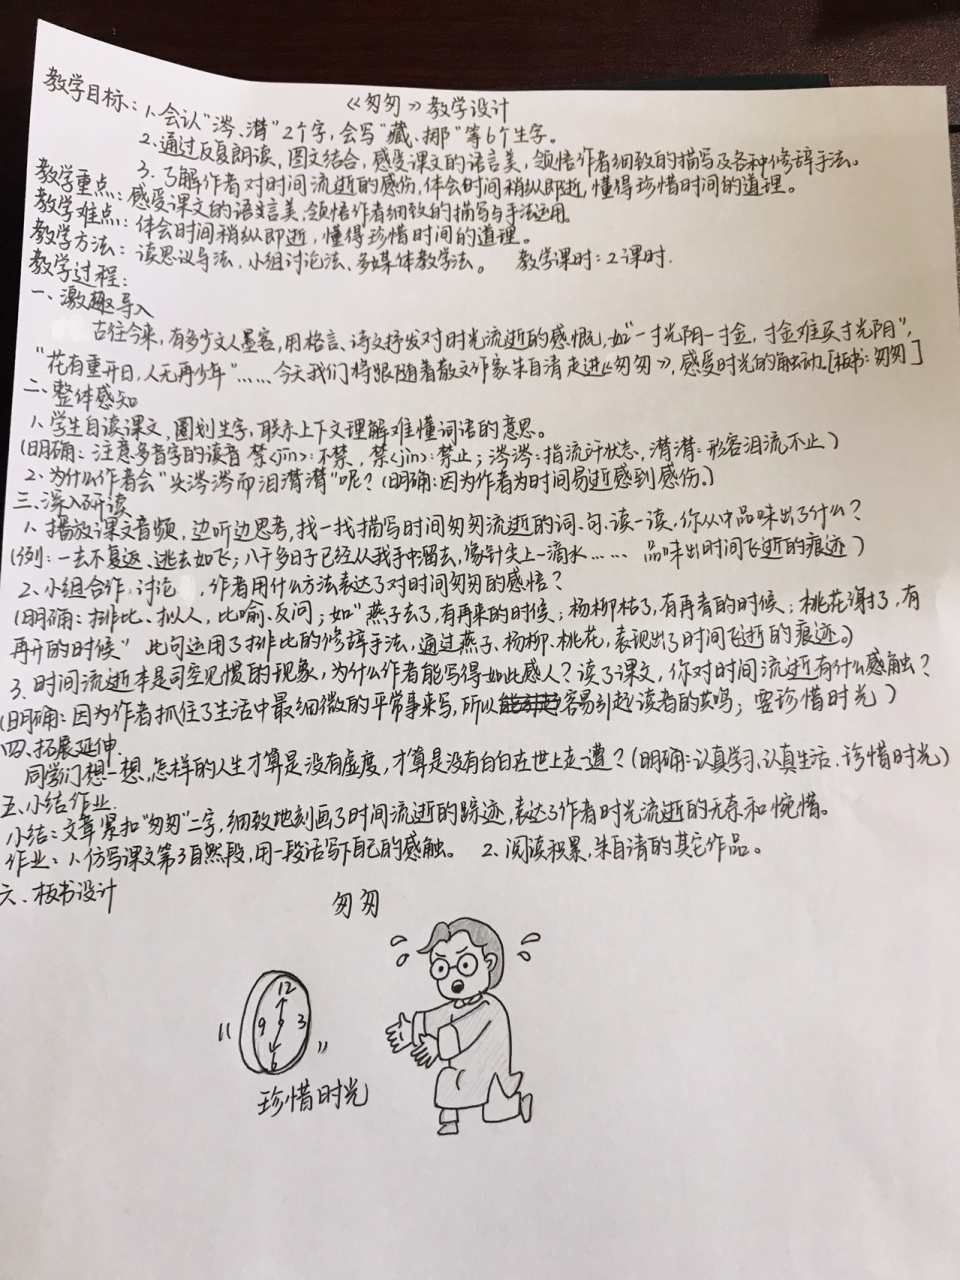 《匆匆》教学设计
教学目标：1、会认“涔、潸”2个字，会写“藏、挪”等6个生字。
2、通过反复朗读，图文结合，感受课文的语言美，领悟作者细致的描写及各种修辞手法。
3、了解作者对时间流逝的感伤，体会时间稍纵即逝，懂得珍惜时间的道理。
教学重点：感受课文的语言美，领悟作者细致的描写与手法运用。
教学难点：体会时间稍纵即逝，懂得珍惜时间的道理。
教学方法：读思议导法，小组讨论法、多媒体教学法。 教学课时：2课时.
教学过程：
一、激趣导入
古往今来，有多少文人墨客，用格言、诗文抒发对时光流逝的感慨，如“一寸光阴一寸金，寸金难买寸光阴”，
“花有重开日，人无再少年”……今天我们将跟随着散文作家朱自清走进《匆匆》，感受时光的触动。[板书：匆匆]
二、整体感知
1、学生自读课文，圈划生字，联系上下文理解难懂词语的意思。
(明确：注意多音字的读音 禁<jīn>：不禁，禁<jìn>：禁止；涔涔：指流汗状态，潸潸：形容泪流不止)
2、为什么作者会“头涔涔而泪潸潸”呢？(明确：因为作者为时间易逝感到感伤。)
三、深入研读
1、播放课文音频，边听边思考，找一找描写时间匆匆流逝的词、句，读一读，你从中品味出了什么？
(例：一去不复返、逃去如飞；八千多日子已经从我手中溜去，像针尖上一滴水…… 品味出时间飞逝的痕迹)
2、小组合作，讨论，作者用什么方法表达了对时间匆匆的感悟？
(明确：排比、拟人，比喻、反问；如“燕子去了，有再来的时候；杨柳枯了，有再青的时候；桃花谢了，有
再开的时候” 此句运用了排比的修辞手法，通过燕子、杨柳、桃花，表现出了时间飞逝的痕迹。)
3、时间流逝本是司空见惯的现象，为什么作者能写得如此感人？读了课文，你对时间流逝有什么感触？
(明确：因为作者抓住了生活中最细微的平常事来写，所以容易引起读者的共鸣；要珍惜时光)
四、拓展延伸.
同学们想一想，怎样的人生才算是没有虚度，才算是没有白白在世上走一遭？(明确：认真学习、认真生活、珍惜时光)
五、小结作业.
小结：文章紧扣“匆匆”二字，细致地刻画了时间流逝的踪迹，表达了作者时光流逝的无奈和惋惜。
作业：1、仿写课文第3自然段，用一段话写下自己的感触。 2、阅读积累，朱自清的其它作品。
六、板书设计
匆匆
12
9 3
6
珍惜时光